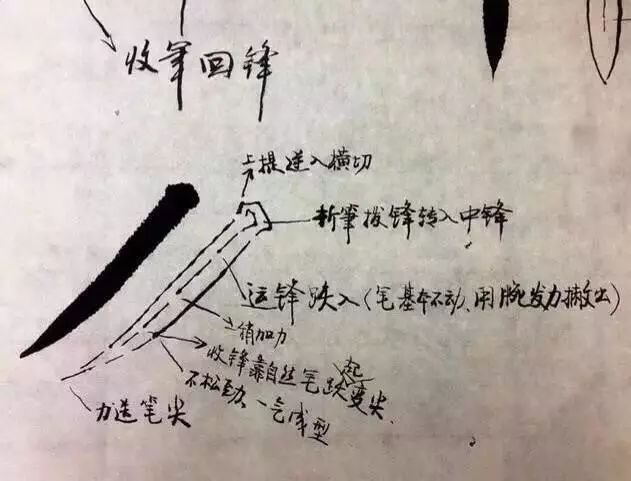 收笔回锋
上提逆入横切
折筆拨锋转入中锋
运锋跌入(笔基本不动、用腕发力撇出)
稍加力
收锋靠自然笔跌起变尖.
不松劲、一气成型
力送笔尖